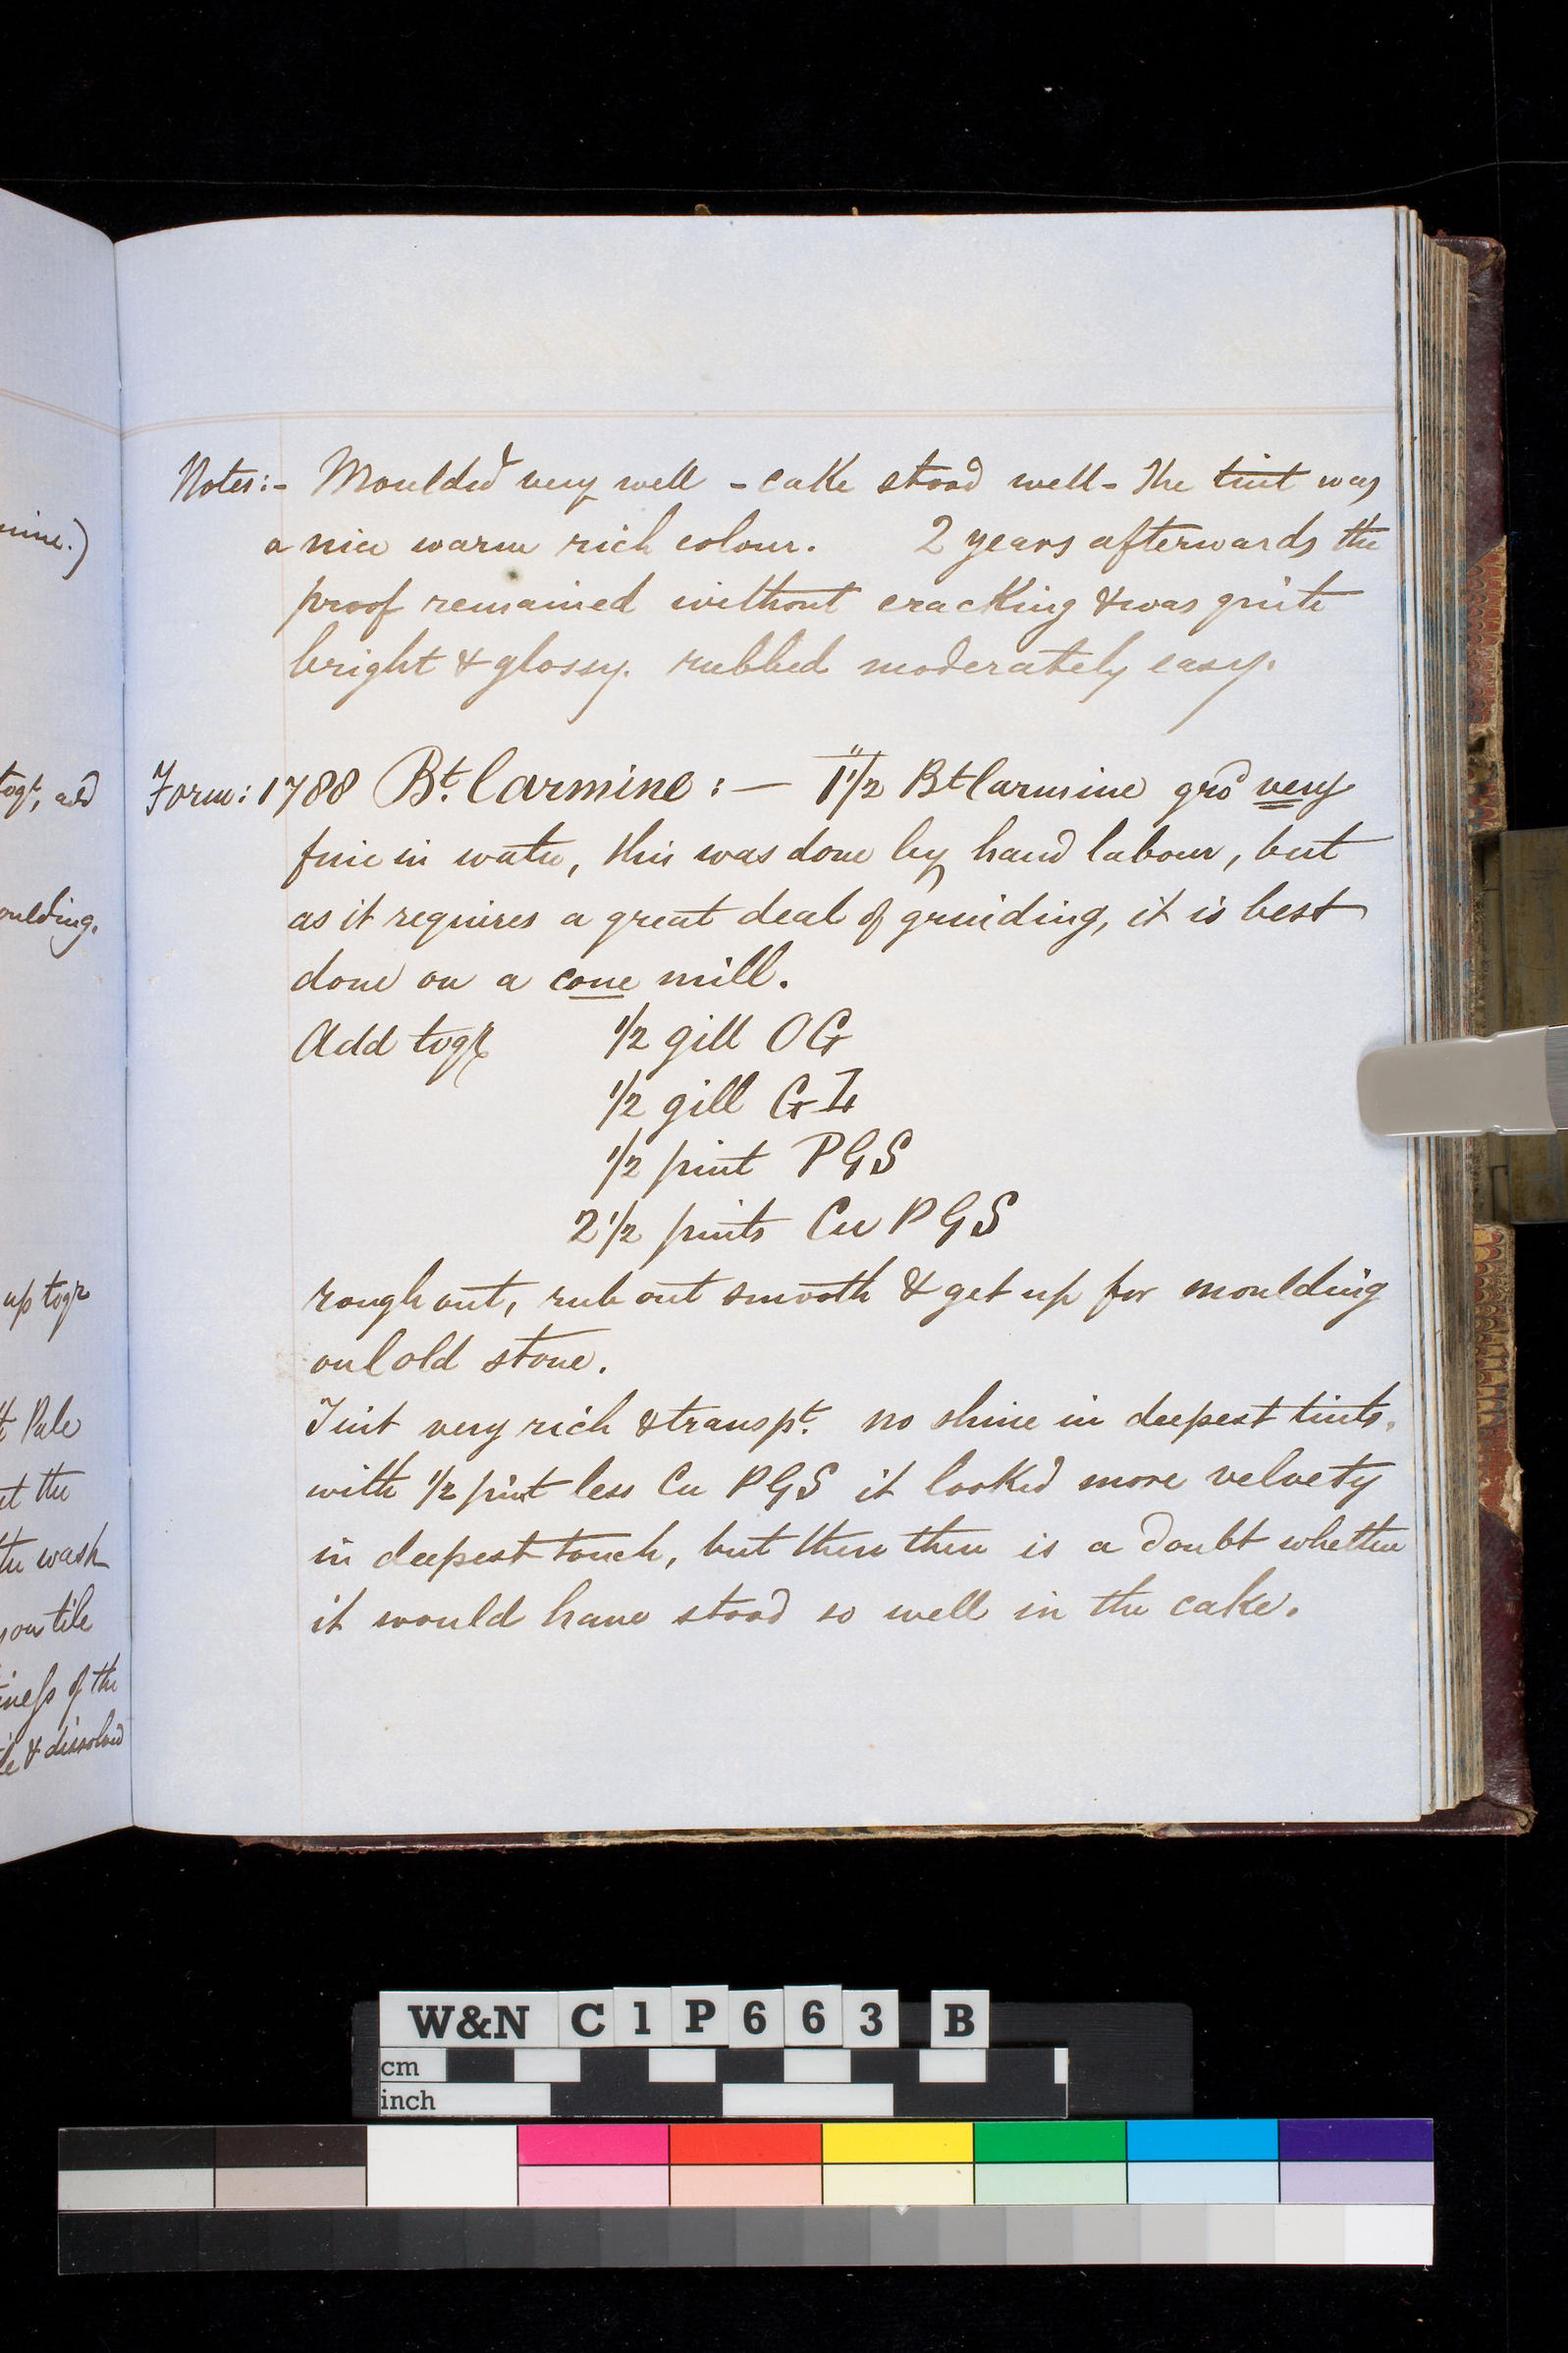 mine.)
togr, add
oulding.
up togr
Pale
the
wash
on tile
iness of the
& dissolved
Notes:- Moulded very well - cake stood well - The tint was
a nice warm rich colour. 2 years afterwards the
proof remained without cracking & was quite
bright & glossy. rubbed moderately easy.
Form: 1788 Bt. Carmine: — 1 1/2 " Bt Carmine grd very
fine in water, this was done by hand labour, but
as it requires a great deal of grinding, it is best
done on a cone mill.
Add togr 1/2 gill OG
1/2 gill G
1/2 pint PGS
2 1/2 pints Cu PGS
rough out, rub out smooth & get up for moulding
on cold stone.
Tint very rich & transpt. no shine in deepest tints,
with 1/2 pint less Cu PGS it looked more velvety
in deepest touch, but then there is a doubt whether
it would have stood so well in the cake.
W&N C1P663 B
cm
inch